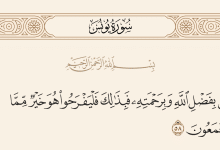 سُورَةُ يُونُسَ
بِسْمِ اللَّهِ الرَّحْمَٰنِ الرَّحِيمِ
بِفَضْلِ ٱللَّهِ وَبِرَحْمَتِهِۦ فَبِذَٰلِكَ فَلْيَفْرَحُوا۟ هُوَ خَيْرٌ مِّمَّا
جْمَعُونَ ٥٨